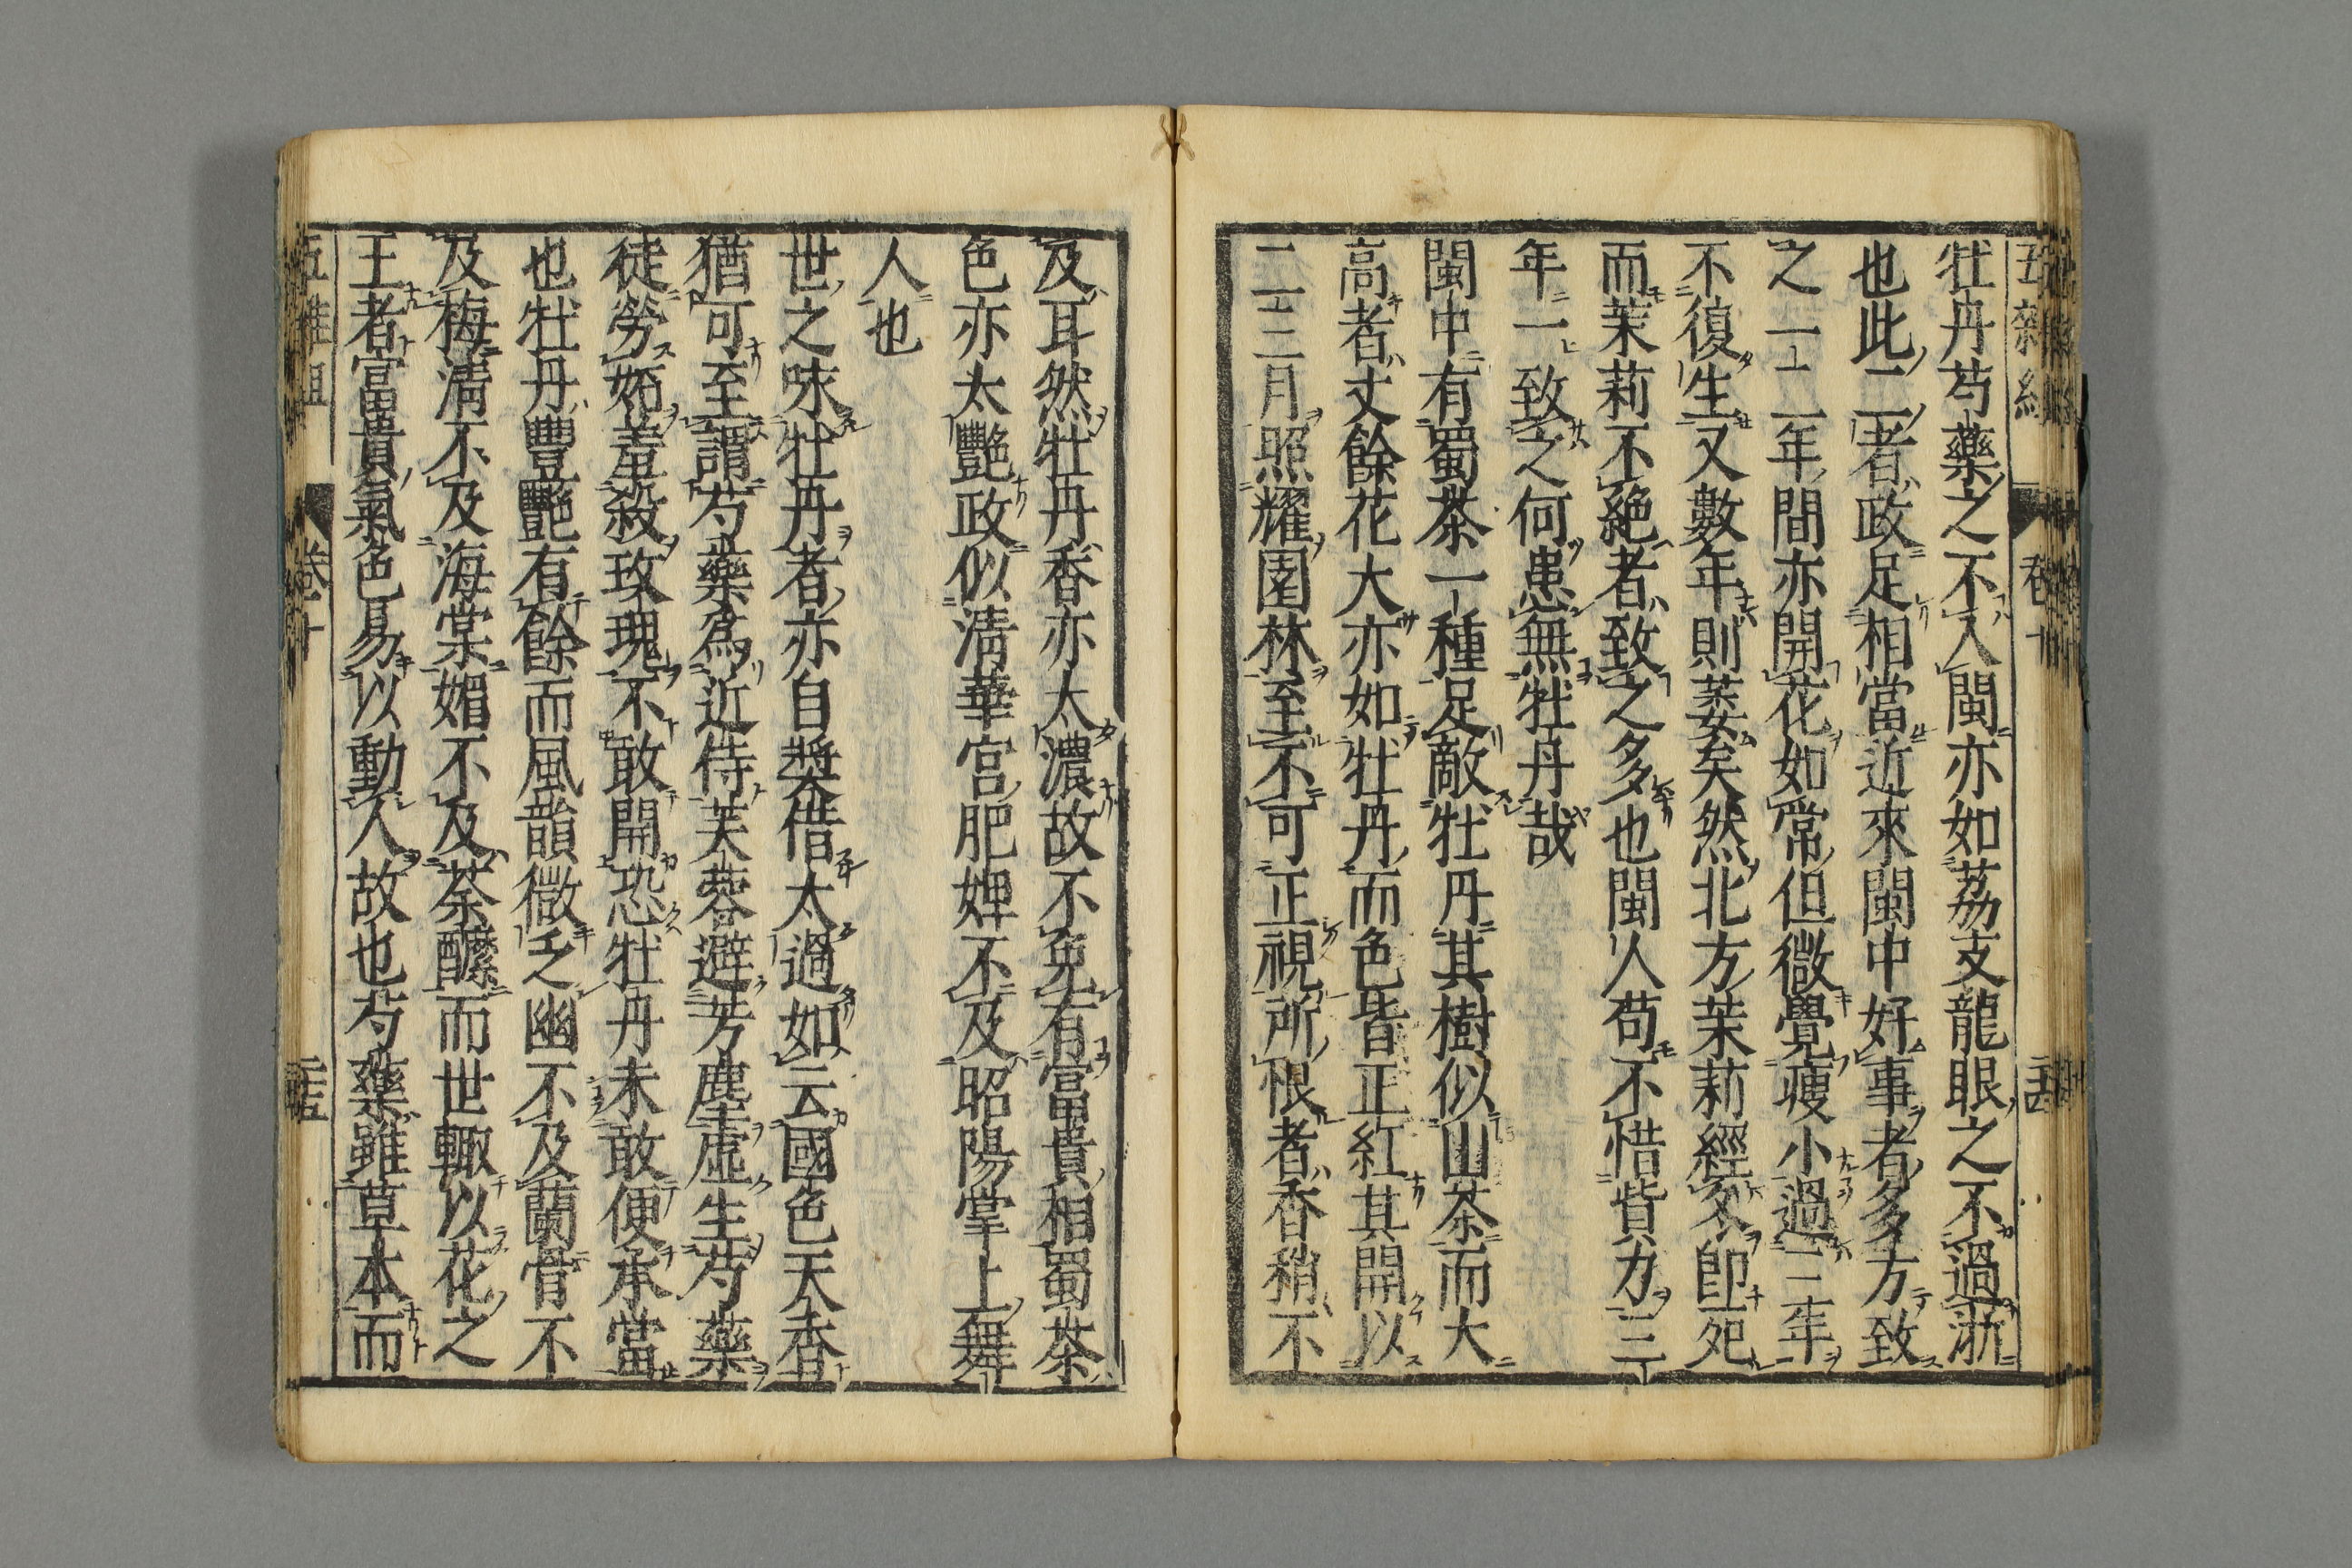 五雜組 卷十
牡丹芍藥之不入閩亦如荔支龍眼之不過浙
也此二者政足相當近來閩中好事者多方致
之一二年間亦開花如常但微覺瘦小過三年
不復生又數年則萎矣然北方茉莉經冬卽死
而茉莉不絶者致之多也閩人苟不惜貲力三
年一致之何患無牡丹哉
閩中有蜀茶一種足敵牡丹其樹似山茶而大
高者丈餘花大亦如牡丹而色皆正紅其開以
二三月照耀園林至不可正視所恨者香稍不
及耳然牡丹香亦太濃故不免有富貴相蜀茶
色亦太艷政似淸華宮肥婢不及昭陽掌上舞
人也
世之咏牡丹者亦自奬借太過如云國色天香
猶可至謂芍藥爲近侍芙蓉避芳塵虛生芍藥
徒勞妬羞殺玫瑰不敢開恐牡丹未敢便承當
也牡丹豐艷有餘而風韻微乏幽不及蘭骨不
及梅淸不及海棠媚不及荼䕷而世輙以花之
王者富貴氣色易以動人故也芍藥雖草本而
五雜組 卷十 二十五